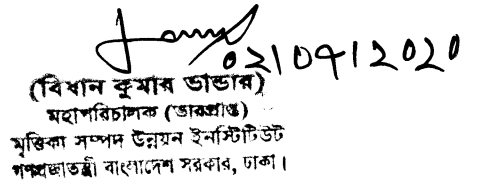 02/04/2020
(বিধান কুমার ভান্ডার)
মহাপরিচালক (ভারপ্রাপ্ত)
মৃত্তিকা সম্পদ উন্নয়ন ইনস্টিটিউট
গণপ্রজাতন্ত্রী বাংলাদেশ সরকার, ঢাকা।